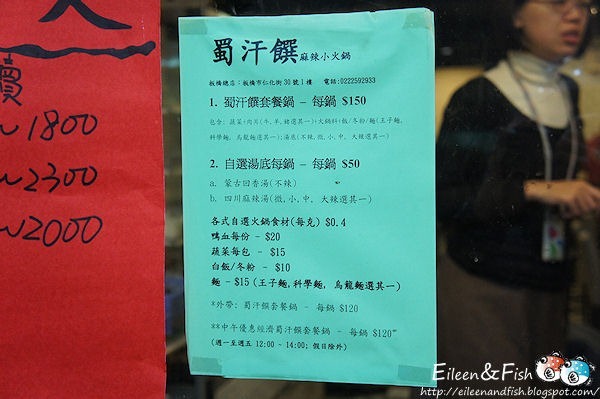 賣
~1800
~2300
~2000
蜀汗饌 麻辣小火鍋
板橋總店：板橋市仁化街30號1樓 電話:0222592933
1. 蜀汗饌套餐鍋 – 每鍋 $150
包含: 蔬菜+肉片(牛,羊,豬選其一)+火鍋料+飯/冬粉/麵(王子麵,
科學麵, 烏龍麵選其一);湯底(不辣,微,小,中, 大辣選其一)
2. 自選湯底每鍋 – 每鍋 $50
a. 蒙古回香湯(不辣)
b. 四川麻辣湯(微,小,中, 大辣選其一)
各式自選火鍋食材(每克) $0.4
鴨血每份 – $20
蔬菜每包 – $15
白飯/冬粉 – $10
麵 – $15(王子麵,科學麵, 烏龍麵選其一)
*外帶: 蜀汗饌套餐鍋 – 每鍋 $120
**中午優惠經濟蜀汗饌套餐鍋 – 每鍋 $120**
(週一至週五 12:00 ~ 14:00; 假日除外)
Eileen&Fish
http://eileenandfish.blogspot.com